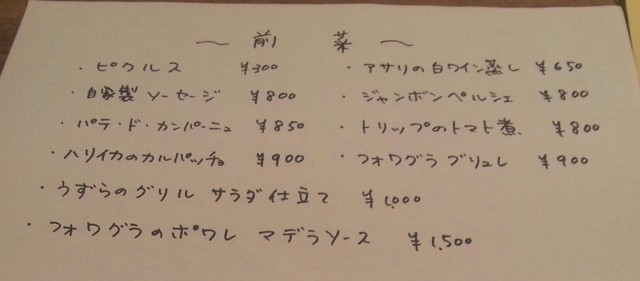 〜 前 菜 〜
・ピクルス ¥300 ・アサリの白ワイン蒸し ¥650
・自家製ソーセージ ¥800 ・ジャンボンペルシェ ¥800
・パテ・ド・カンパーニュ ¥850 ・トリップのトマト煮 ¥800
・ハリイカのカルパッチョ ¥900 ・フォワグラブリュレ ¥900
・うずらのグリル サラダ仕立て ¥1,000
・フォワグラのポワレ マデラソース ¥1,500